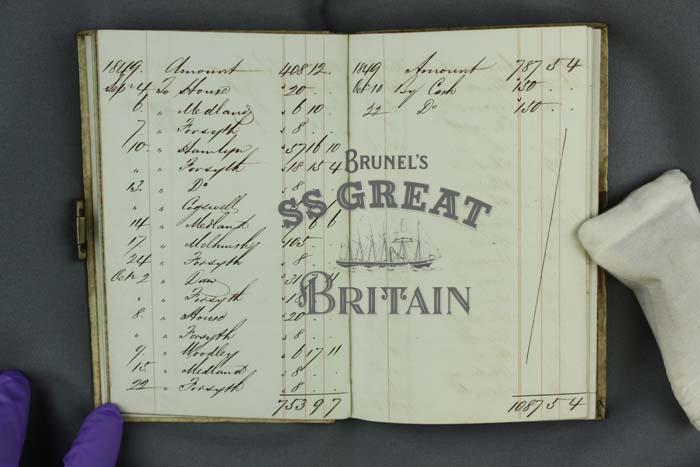 1849. Amount 408 12 .
Sepr 4 To House " 20 . .
6 " Medland " 6 10 .
7 " Forsyth " 8 . .
10. " Hamlyn " 57 16 10
" " Forsyth " 18 15 4
13. " Do " 8 . .
" " Cogswell
14 " Medland 6 6
17. " Melhuish 105 . .
24 " Forsyth " 8 . .
Octr 2 " Daw " 31
" " Forsyth " 18
8. " House " 20
" " Forsyth " 8 . .
9. " Woodley " 6 17 11
15. " Medland " 8 . .
22 " Forsyth " 8 . .
753 9 7
1849 Amount 787 5 4
Oct 10 By Cash " 150 . .
22 " Do " 150 . .
1087 5 4
BRUNEL'S
SS GREAT
BRITAIN